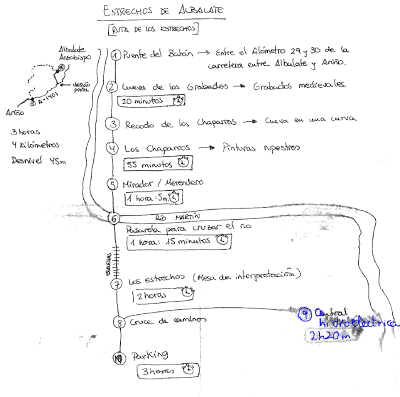 ESTRECHOS DE ALBALATE
(RUTA DE LOS ESTRECHOS)
Albalate
Arzobispo
Ariño
A-1401
3 horas
4 Kilómetros
Desnivel 45m
1 Puente del Batán → Entre el Kilómetro 29 y 30 de la
carretera entre Albalate y Ariño.
2 Cueva de los Grabados → Grabados medievales.
20 minutos
3 Recodo de los Chaparros → Cueva en una curva
4 Los Chaparros → Pinturas rupestres
55 minutos
5 Mirador / Merendero
1 hora: 5m
6 RÍO MARTÍN
Pasarela para cruzar el río
1 hora: 15 minutos
7 Los estrechos (Mesa de interpretación)
2 horas
8 Cruce de caminos
9 Central
hidroeléctrica
2h20m
10 Parking
3 horas